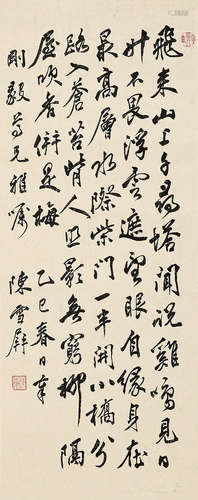 飛來山上千尋塔聞說雞鳴見日
升不畏浮雲遮望眼自緣身在
最高層水際柴門一半開小橋分
路入蒼苔背人照影無窮柳隔
屋吹香併是梅 乙巳春日奉
剛毅尊兄雅囑 陳雪屏